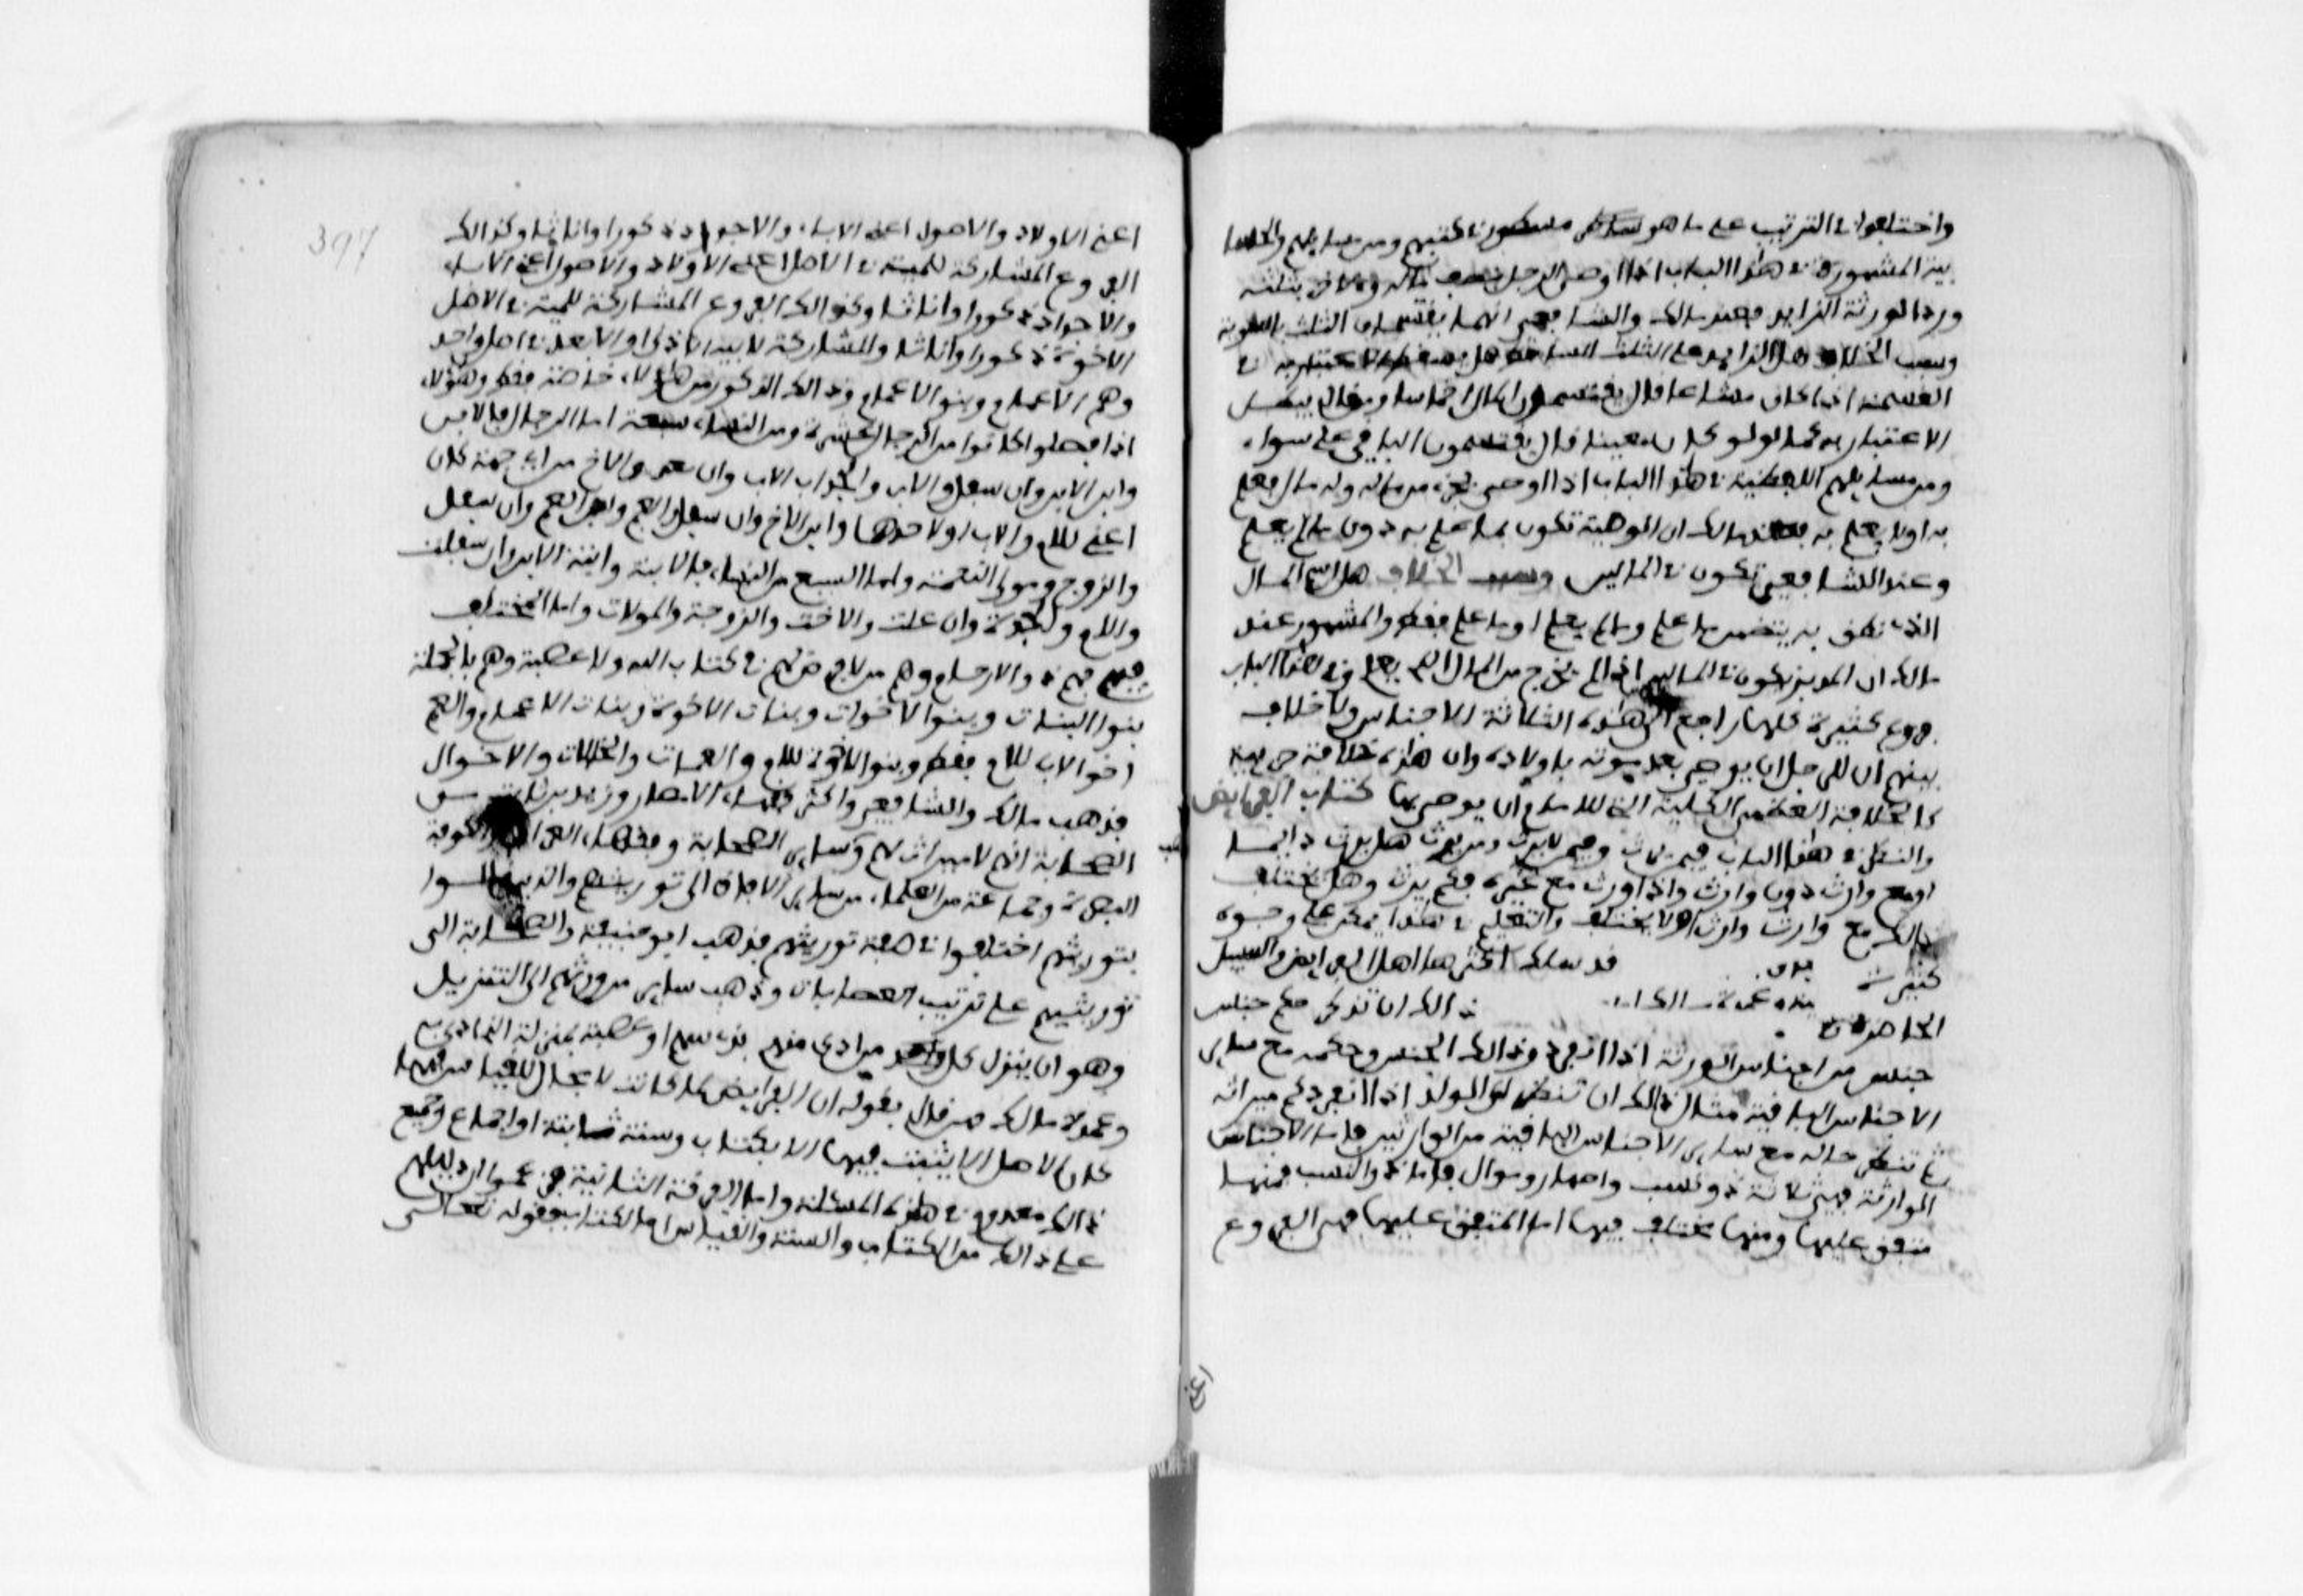 واختلفوا في الترتيب على ما هو مسطور في كتبهم ومن مسايلهم والخلاف
بينهم المشهورة في هذا الباب اذا اوصى لرجل بنصف ماله ولاخر بثلثه
ورد الورثة الزايد فعند مالك والشافعي انهما يقتسمان الثلث بالسوية
وسبب الخلاف هل الزايد على الثلث الساقط هل يسقط الاعتبار به في
القسمة اذا كان مشاعا قال يقتسمون المال اخماسا ومن قال يبطل
الاعتبار به كما لو كان معينا قال يقتسمون الباقي على سواء
ومن مسايلهم اللفظية في هذا الباب اذا اوصى بجزء من ماله وله مال يعلم
به اولا يعلم به فعند مالك ان الوصية تكون بما علم به دون ما لم يعلم
وعند الشافعي تكون في المالين وسبب الخلاف هل اسم المال
الذي نطق به يتضمن ما علم وما لم يعلم او ما علم فقط والمشهور عند
مالك ان المدبر يكون في المالين اذا لم يخرج من المال الذي يعلم وفي هذا الباب
فروع كثيرة كلها راجع الى هذه الثلاثة الاجناس ولا خلاف
بينهم ان للرجل ان يوصي بعد موته باولاده وان هذه خلافة جزيية
كالخلافة العظمى الكلية التي للامام ان يوصي بها كتاب الفرايض
والنظر في هذا الباب فيمن يرث وفيمن لا يرث ومن يرث هل يرث دايما
او مع وارث دون وارث واذا ورث مع غيره فكم يرث وهل يختلف
ذالك مع وارث وارث او لا يختلف والتعليم في هذا يمكن على وجوه
كثيرة قد سلك اكثرها اهل الفرايض والسبيل
الحاضرة ذالك ان تذكر حكم جنس
جنس من اجناس الورثة اذا انفرد ذالك الجنس وحكمه مع ساير
الاجناس الباقية مثال ذالك ان تنظر الى الولد اذا انفرد كم ميراثه
ثم تنظر حاله مع ساير الاجناس الباقية من الوارثين فاما الاجناس
الوارثة فهي ثلاثة ذو نسب واصهار وموال فاما ذو النسب فمنها
متفق عليها ومنها مختلف فيها اما المتفق عليها فهي الفروع
اعني
397
اعني الاولاد والاصول اعني الاباء والاجداد ذكورا واناثا وكذالك
الفروع المشاركة للميت في الاصل اعني الاولاد والاصول اعني الاباء
والاجداد ذكورا واناثا وكذالك الفروع المشاركة للميت في الاصل
الاخوة ذكورا واناثا والمشاركة لابيه الادنى او الابعد في اصل واحد
وهم الاعمام وبنو الاعمام وذالك الذكور من هؤلاء خاصة فقط وهؤلاء
اذا فصلوا كانوا من الرجال عشرة ومن النساء سبعة اما الرجال فالابن
وابن الابن وان سفل والاب والجد اب الاب وان علا والاخ من اي جهة كان
اعني للام والاب او لاحدهما وابن الاخ وان سفل والعم وابن العم وان سفل
والزوج ومولى النعمة واما السبع من النساء فالابنة وابنة الابن وان سفلت
والام والجدة وان علت والاخت والزوجة والمولات واما المختلف
فيهم فهم ذوو الارحام وهم من لا فرض لهم في كتاب الله ولا عصبة وهم بالجملة
بنو البنات وبنو الاخوات وبنات الاخوة وبنات الاعمام والعم
اخو الاب للام فقط وبنو الاخوة للام والعمات والخالات والاخوال
فذهب مالك والشافعي واكثر فقهاء الامصار وزيد بن ثابت من
الصحابة انهم لا ميراث لهم وساير الصحابة وفقهاء العراق والكوفة
البصرة وجماعة من العلماء من ساير الافاق الى توريثهم والذين قالوا
بتوريثهم اختلفوا في صفة توريثهم فذهب ابو حنيفة والصحابة الى
توريثهم على ترتيب العصبات وذهب ساير من ورثهم الى التنزيل
وهو ان ينزل كل واحد من ادى منهم بذي سهم او عصبة بمنزلة الذي ادى به
وعمدة مالك ومن قال بقوله ان الفرايض لما كانت لا مجال للقياس فيها
كان الاصل الا يثبت فيها الا بكتاب وسنة ثابتة او اجماع وجميع
ذالك معدوم في هذه المسالة واما الفرقة الثانية فزعموا ان دليلهم
على ذالك من الكتاب والسنة والقياس اما الكتاب فقوله تعالى